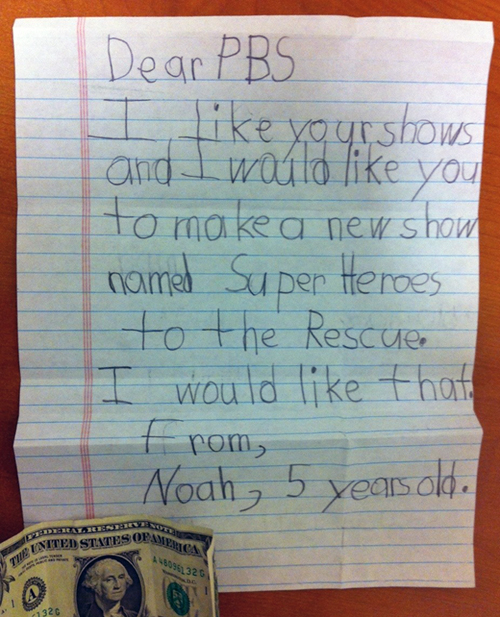 Dear PBS
I like your shows
and I would like you
to make a new show
named Super Heroes
to the Rescue.
I would like that.
From,
Noah, 5 years old.
FEDERAL RESERVE NOTE
THE UNITED STATES OF AMERICA
A 48036132 G
A
132 G